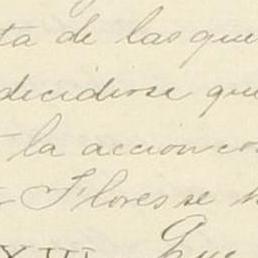 ta de las que
decidirse que
la accion co
Flores se h
XIII Que